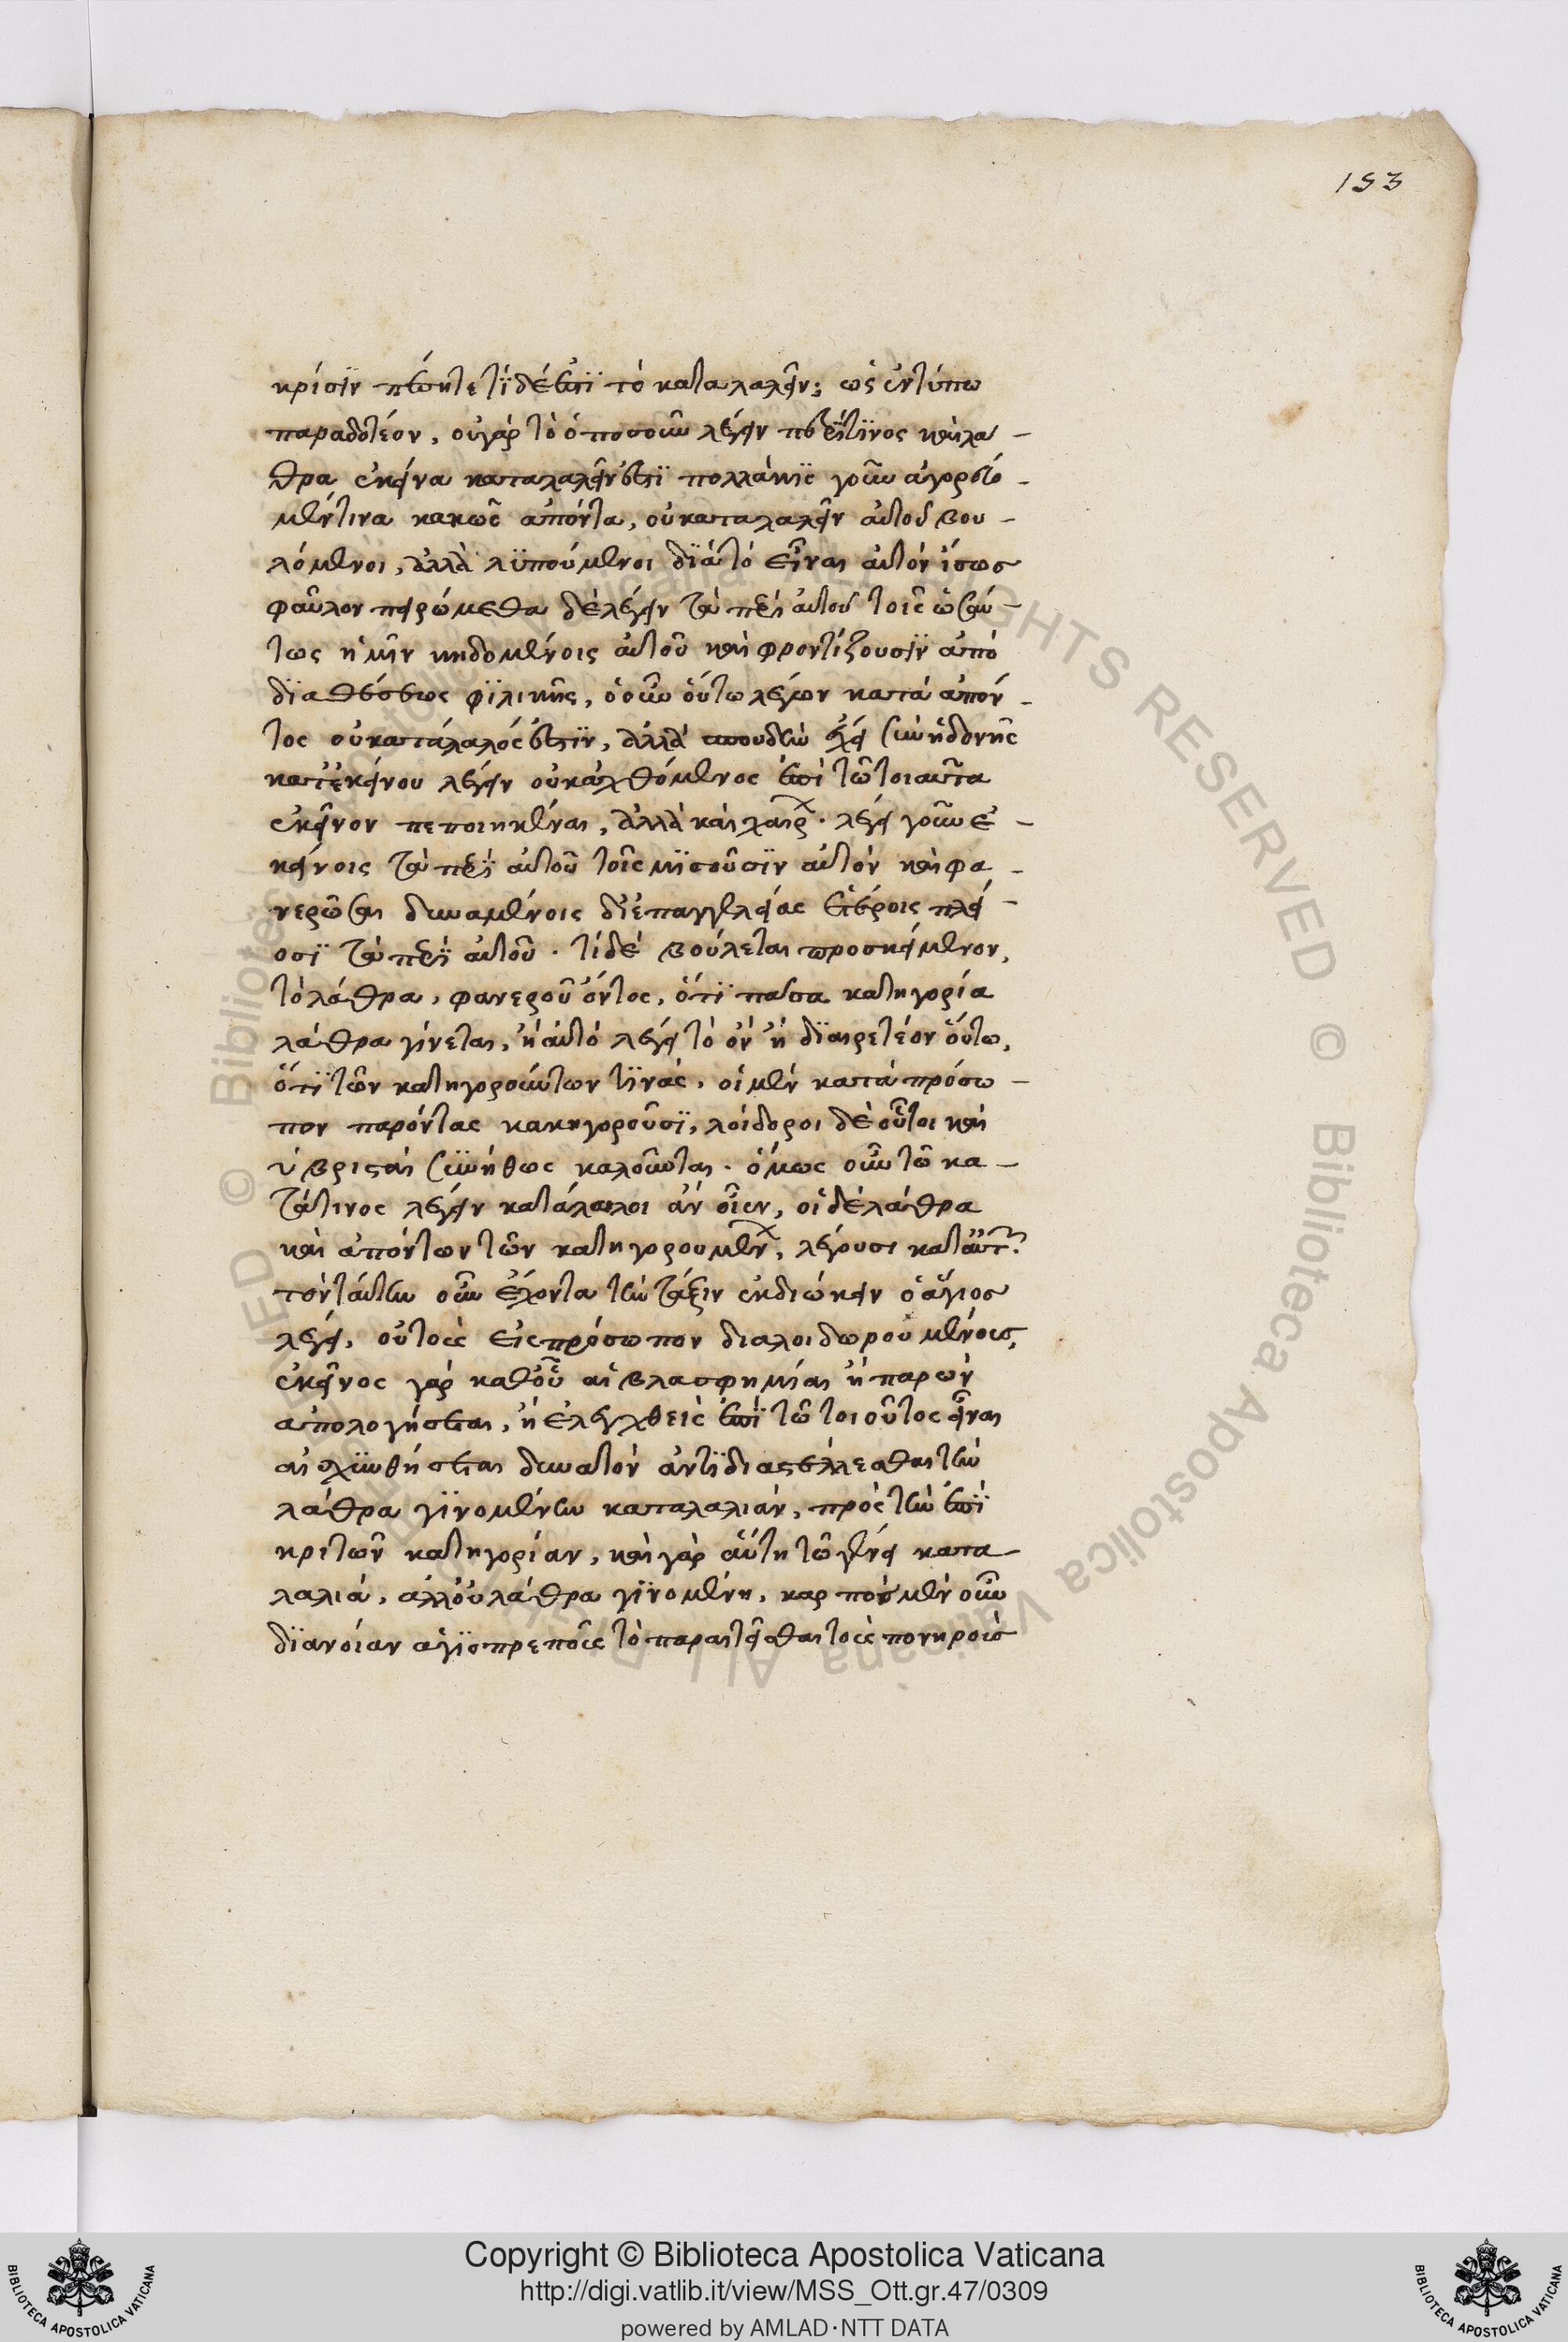 153
κρίσϊν πέσητε τί δέ ἐστϊ τὸ καταλαλεῖν; ὡς ἐν τύπω
παραδοτέον, οὐ γὰρ τὸ ὁποσοῦν λέγειν περί τϊνος καὶ λα –
θρα ἐκεῖνα καταλαλεῖν ἐστϊ πολλάκϊς γοῦν ἀγορεύο –
μέν τινα κακῶς ἀπόντα, οὐ καταλαλεῖν αὐτοῦ βου –
λόμενοι, ἀλλὰ λϋπούμενοι δϊὰ τὸ εἶναι αὐτὸν ἴσως
φαῦλον πειρώμεθα δὲ λέγειν τὰ περὶ αὐτοῦ τοῖς ὡσαύ –
τως ἡμῖν κηδομένοις αὐτοῦ καὶ φροντίζουσϊν ἀπὸ
δϊαθέσεως φϊλικῆς, ὁ οὖν οὕτω λέγων κατὰ ἀπόν –
τος οὐ κατάλαλός ἐστϊν, ἀλλὰ σπουδὴν ἔχει σὺν ἡδονῆς
κατ' ἐκείνου λέγειν οὐκ ἀχθόμενος ἐπὶ τῶ τοιαῦτα
ἐκεῖνον πεποιηκέναι, ἀλλὰ καὶ χαίρων· λέγει γοῦν ἐ –
κείνοις τὰ περὶ αὐτοῦ τοῖς μϊσοῦσϊν αὐτὸν καὶ φα –
νερῶσαι δυναμένοις δι' ἐπαγγελείας ἑτέροις πλεί –
οσϊ τὰ περὶ αὐτοῦ· τί δὲ βούλεται προσκείμενον,
τὸ λάθρα, φανεροῦ ὄντος, ὅτϊ πᾶσα κατηγορία
λάθρα γίνεται, ἢ αὐτὸ λέγει τὸ ὂν ἢ δϊαιρετέον οὕτω,
ὅτϊ τῶν κατηγορούντων τϊνάς, οἱ μὲν κατὰ πρόσω –
πον παρόντας κακηγοροῦσϊ, λοίδοροι δὲ οὗτοι καὶ
ὑβρισταὶ συνήθως καλοῦνται· ὅμως οὖν τῶ κα –
τά τινος λέγειν κατάλαλοι ἂν εἶεν, οἱ δὲ λάθρα
καὶ ἀπόντων τῶν κατηγορουμένων, λέγουσι κατ' αὐτῶν
τὸν ταύτην οὖν ἔχοντα τὴν τάξιν ἐκδιώκειν ὁ ἅγιος
λέγει, οὐ τοὺς εἰς πρόσωπον διαλοιδωρουμένους,
ἐκεῖνος γὰρ καθ' οὗ αἱ βλασφημίαι ἢ παρὼν
ἀπολογήσεται, ἢ ἐλεγχθεὶς ἐπὶ τῶ τοιοῦτος εἶναι
αἰσχυνθήσεται δυνατὸν ἀντϊδιαστέλλεσθαι τὴν
λάθρα γϊνομένην καταλαλιάν, πρὸς τὴν ἐπὶ
κριτῶν κατηγορίαν, καὶ γὰρ αὕτη τῶ γένει κατα –
λαλιά, ἀλλ' οὐ λάθρα γϊνομένη, καρπὸς μὲν οὖν
δϊανοίαν ἁγϊοπρεποῦς τὸ παραιτεῖσθαι τοὺς πονηροὺς
Copyright © Biblioteca Apostolica Vaticana
http://digi.vatlib.it/view/MSS_Ott.gr.47/0309
powered by AMLAD·NTT DATA
BIBLIOTECA APOSTOLICA VATICANA
BIBLIOTECA APOSTOLICA VATICANA